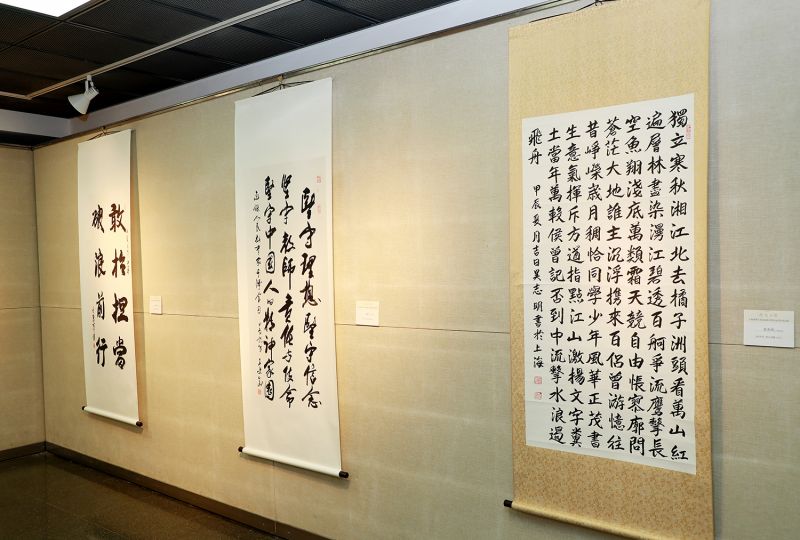 獨立寒秋湘江北去橘子洲頭看萬山紅
遍層林盡染漫江碧透百舸爭流鷹擊長
空魚翔淺底萬類霜天競自由悵寥廓問
蒼茫大地誰主沉浮攜來百侶曾游憶往
昔崢嶸歲月稠恰同學少年風華正茂書
生意氣揮斥方遒指點江山激揚文字糞
土當年萬戶侯曾記否到中流擊水浪遏
飛舟 甲辰夏月吉日吳志明書於上海
堅守理想堅守信念
堅守教師責任与使命
堅守中国人的精神家園
敢於担當
破浪前行